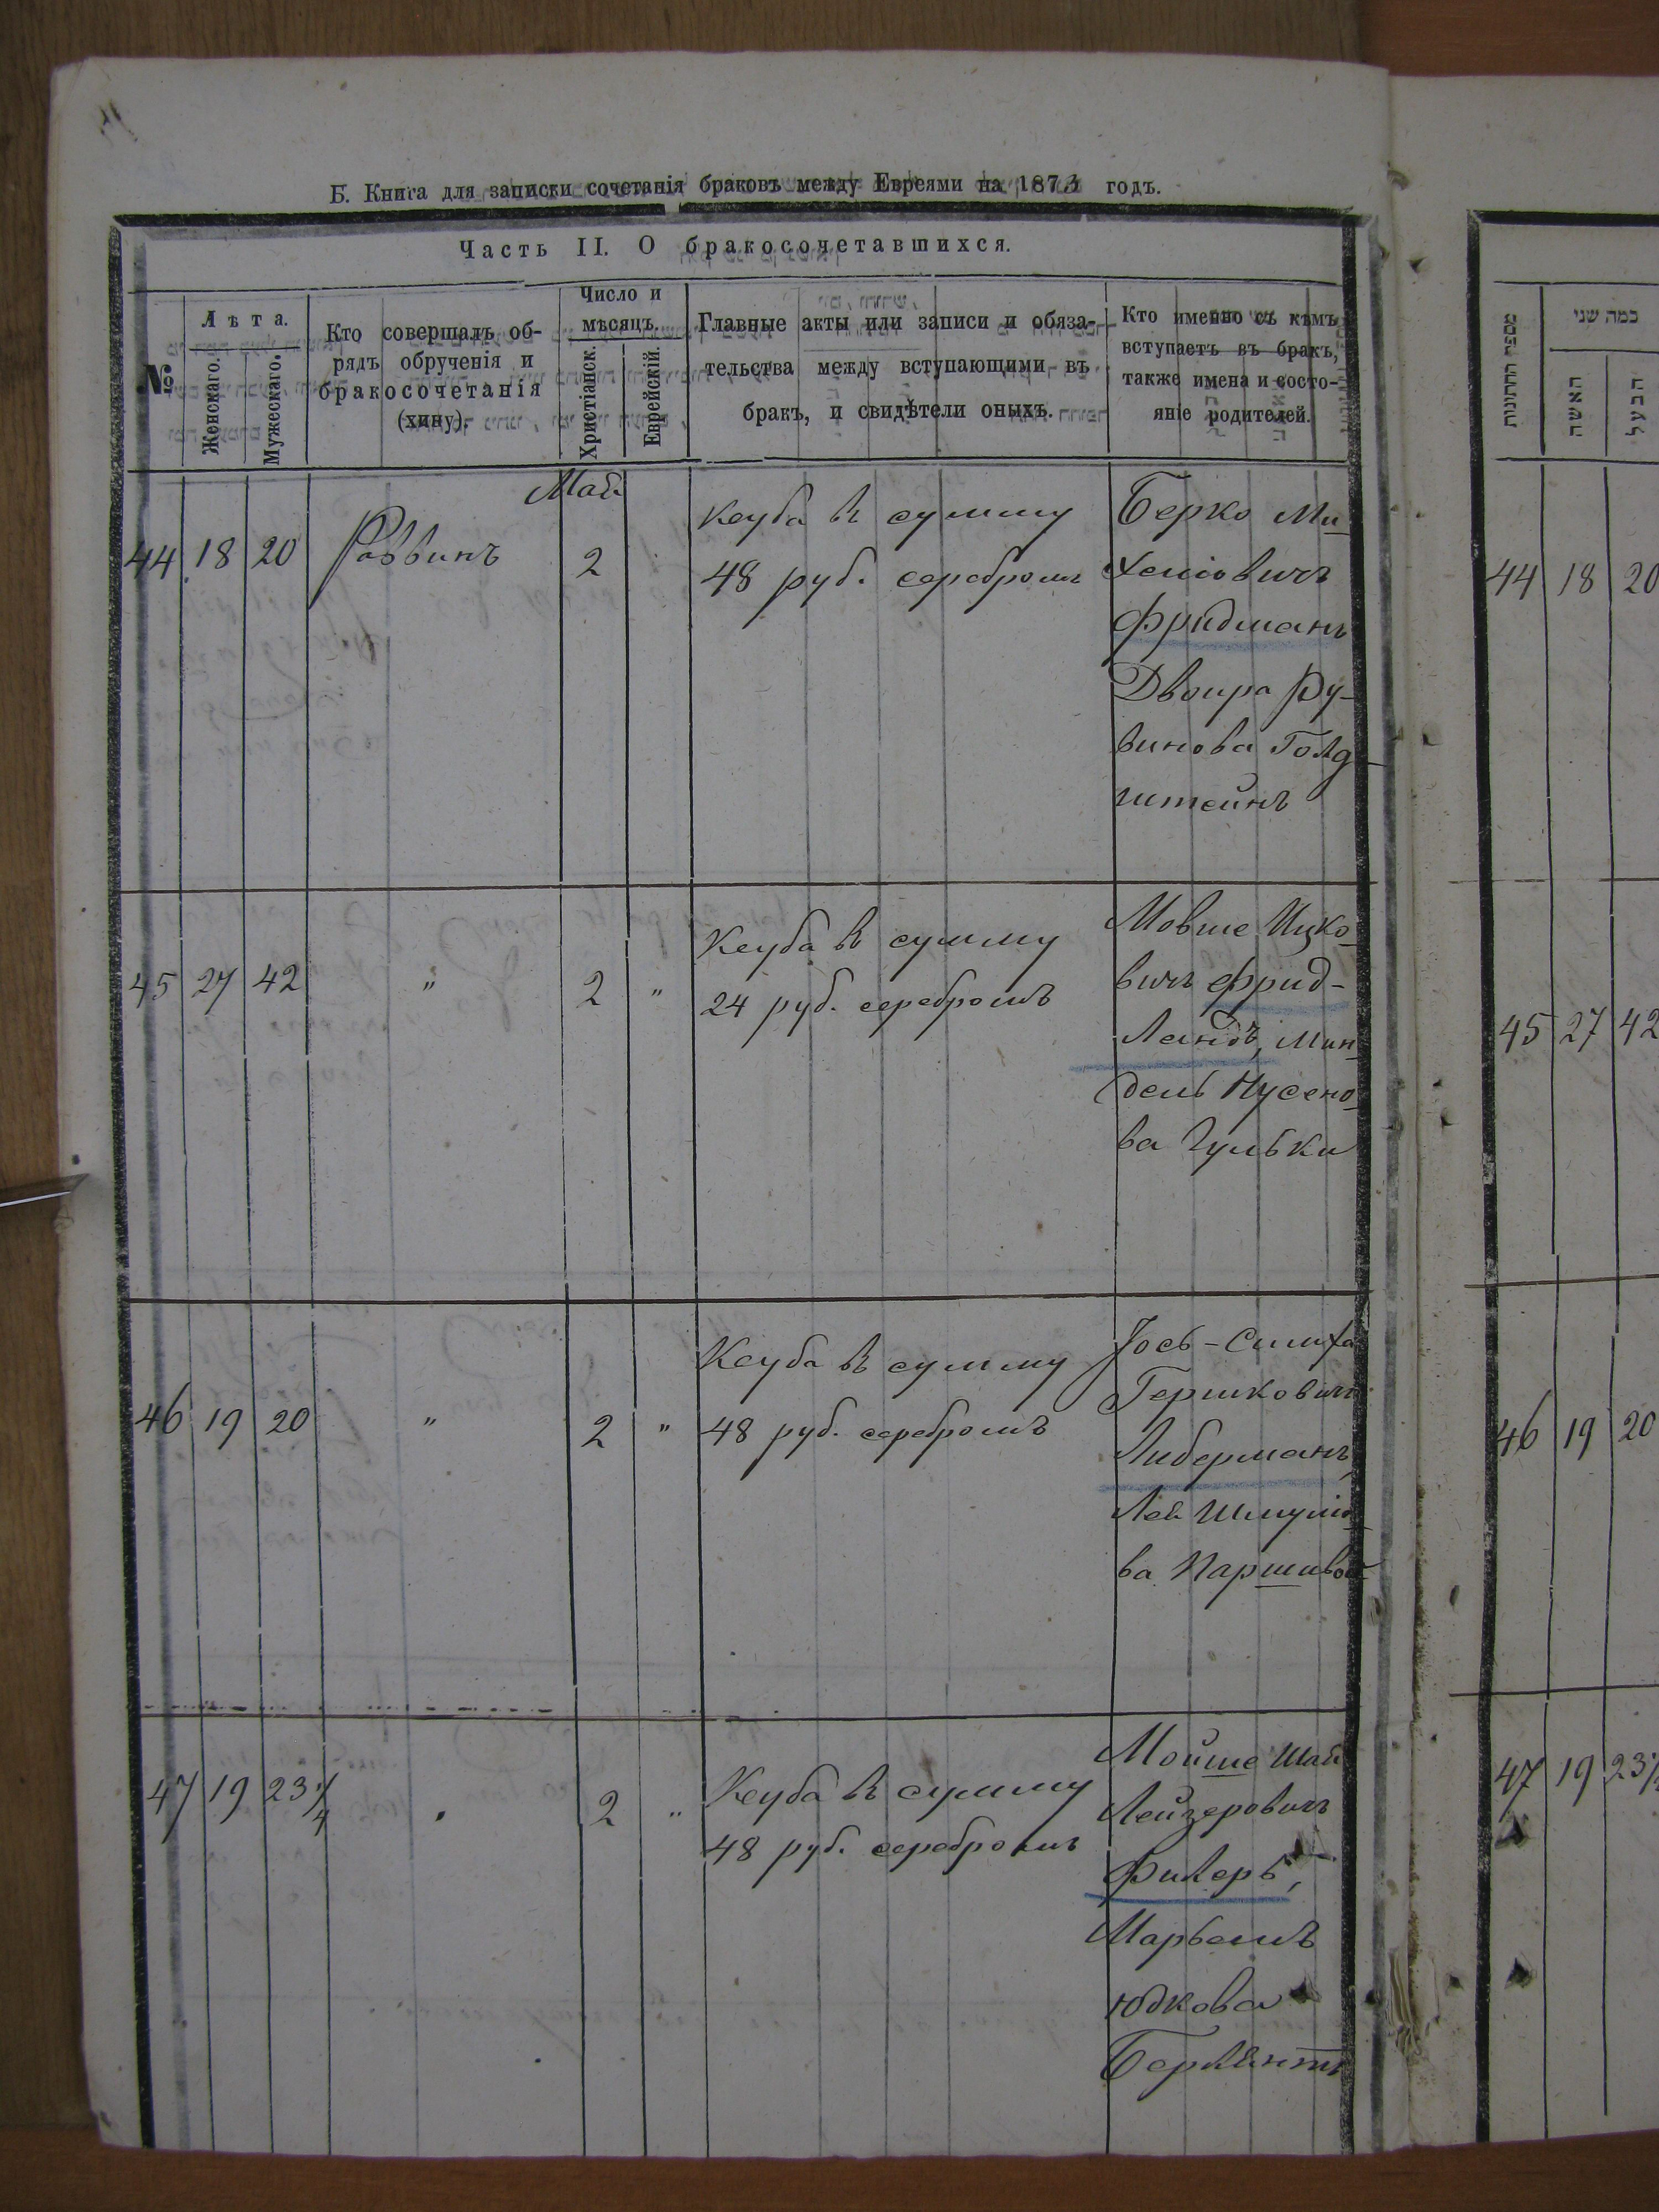 Б. Книга для записки сочетанія браковъ между Евреями на 1873 годъ.
Часть II. О бракосочетавшихся.
№
Лѣта.
Женскаго.
Мужескаго.
Кто совершалъ об-
рядъ обрученія и
бракосочетанія
(хину).
Число и
мѣсяцъ.
Христіанск.
Еврейскій.
Главные акты или записи и обяза-
тельства между вступающими въ
бракъ, и свидѣтели оныхъ.
Кто именно съ кѣмъ
вступаетъ въ бракъ,
также имена и состо-
яніе родителей.
מספר החתונות
כמה שני
האשה
הבעל
Май
44 18 20 Раввинъ 2
Кеуба въ сумму
48 руб. серебромъ
Берко Ми-
хеліовичъ
Фридманъ
Двоира Ру-
винова Голд-
штейнъ
44 18 20
45 27 42 " 2 "
Кеуба въ сумму
24 руб. серебромъ
Мовше Ицко-
вичъ Фрид-
ландъ, Мин-
дель Нусено-
ва Гулька
45 27 42
46 19 20 " 2 "
Кеуба въ сумму
48 руб. серебромъ
Іось-Симха
Гершковичъ
Либерманъ,
Лея Шмуліо-
ва
46 19 20
47 19 23 1/4 " 2 "
Кеуба въ сумму
48 руб. серебромъ
Мойше Шая
Лейзеровичъ
Филеръ,
Марьемъ
Юдкова
Берлантъ
47 19 23